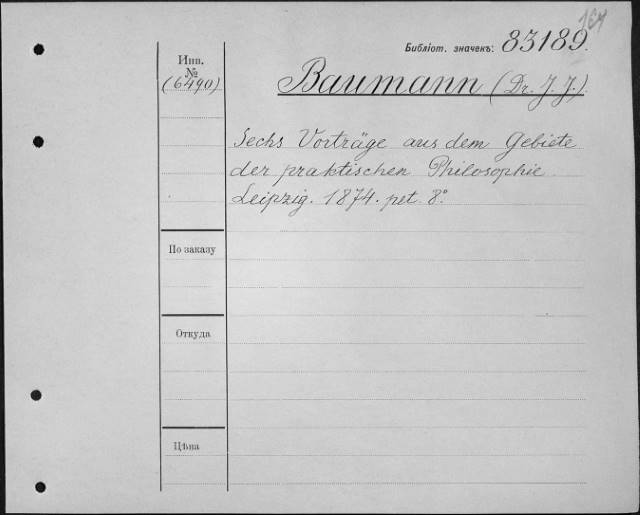 164
Библіот. значекъ: 83189.
Инв.
№
(6490)
Baumann (Dr. J. J.)
Sechs Vorträge aus dem Gebiete
der praktischen Philosophie.
Leipzig. 1874. pet. 8°.
По заказу
Откуда
Цѣна